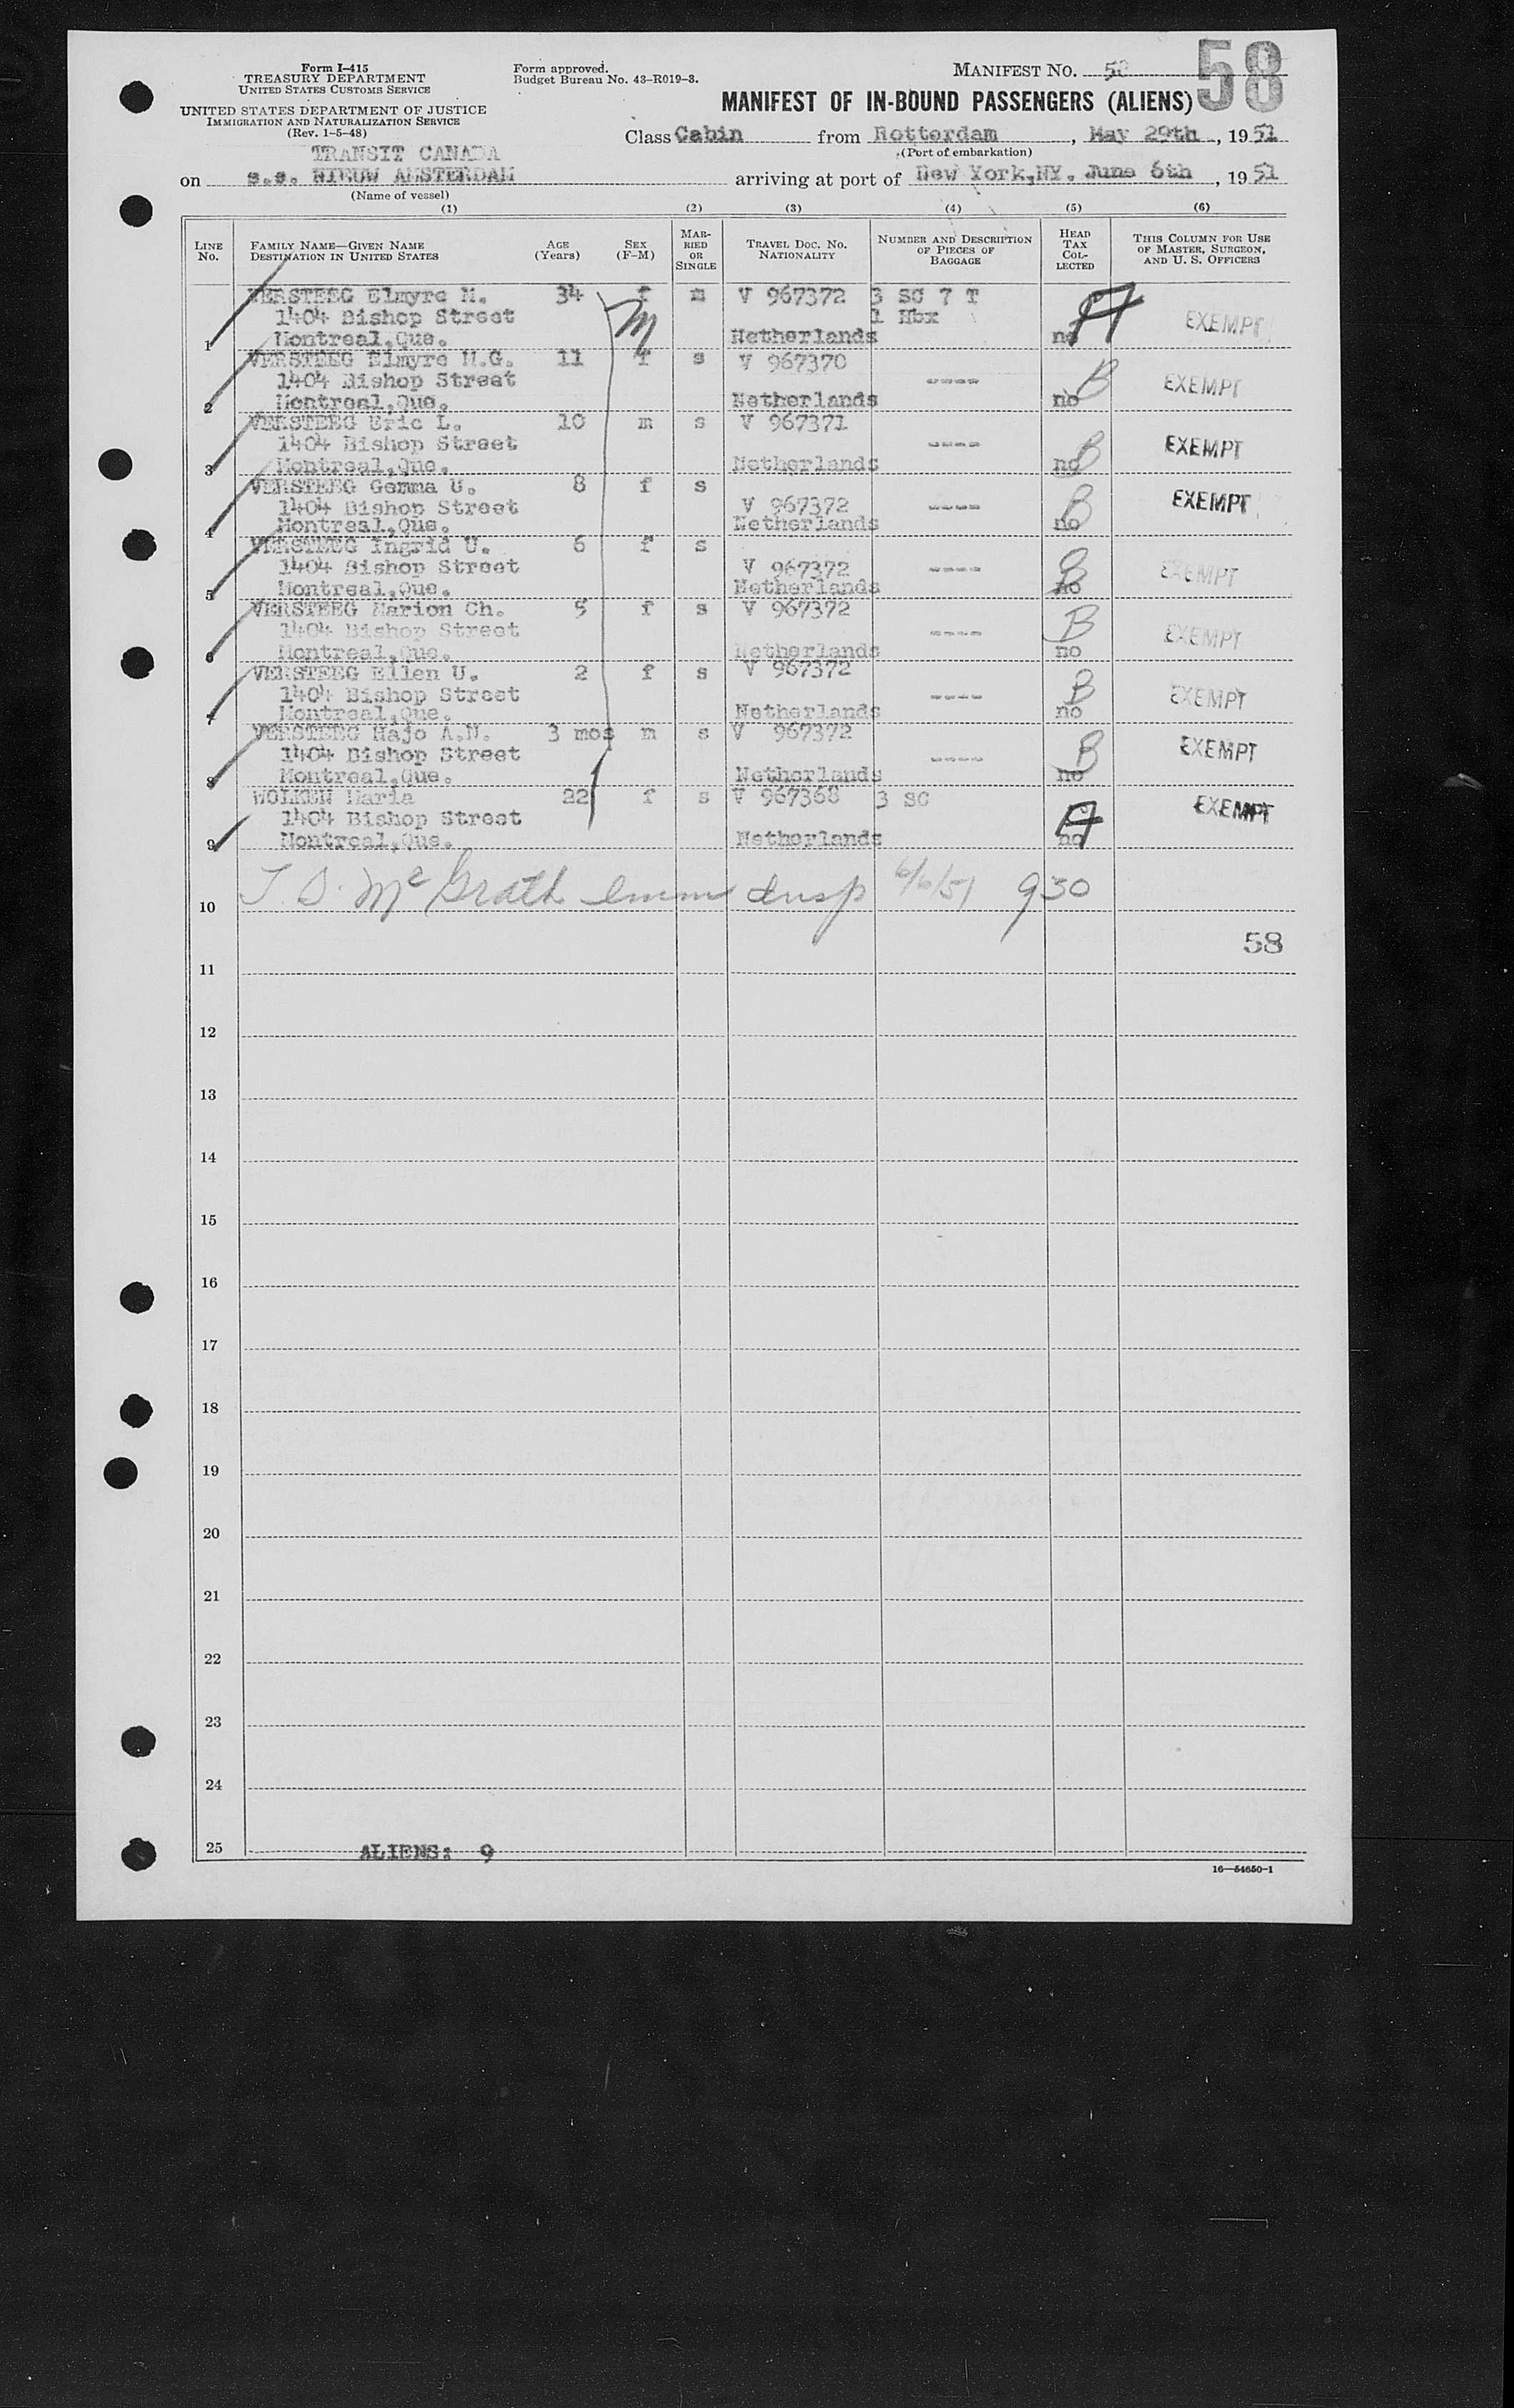 Form I-415
TREASURY DEPARTMENT
UNITED STATES CUSTOMS SERVICE
UNITED STATES DEPARTMENT OF JUSTICE
IMMIGRATION AND NATURALIZATION SERVICE
(Rev. 1-5-48)
Form approved.
Budget Bureau No. 43-R019-3.
MANIFEST NO. 58
58
MANIFEST OF IN-BOUND PASSENGERS (ALIENS)
Class Cabin from Rotterdam, May 29th, 1951
(Port of embarkation)
TRANSIT CANADA
on s.s. NIEUW AMSTERDAM arriving at port of New York, NY. June 6th, 1951
(Name of vessel)
(1) (2) (3) (4) (5) (6)
LINE No. FAMILY NAME—GIVEN NAME DESTINATION IN UNITED STATES AGE (Years) SEX (F-M) MARRIED OR SINGLE TRAVEL DOC. NO. NATIONALITY NUMBER AND DESCRIPTION OF PIECES OF BAGGAGE HEAD TAX COLLECTED THIS COLUMN FOR USE OF MASTER, SURGEON, AND U. S. OFFICERS
VERSTEEG Elmyre M. 34 f m V 967372 3 SC 7 T
1404 Bishop Street M 1 Hbx A EXEMPT
1 Montreal,Que. Netherlands no
VERSTEEG Elmyre M.G. 11 f s V 967370
1404 Bishop Street ---- B EXEMPT
2 Montreal,Que. Netherlands no
VERSTEEG Eric L. 10 m s V 967371
1404 Bishop Street ---- B EXEMPT
3 Montreal,Que. Netherlands no
VERSTEEG Gemma U. 8 f s
1404 Bishop Street V 967372 ---- B EXEMPT
4 Montreal,Que. Netherlands no
VERSTEEG Ingrid U. 6 f s
1404 Bishop Street V 967372 ---- B EXEMPT
5 Montreal,Que. Netherlands no
VERSTEEG Marion Ch. 5 f s V 967372
1404 Bishop Street ---- B EXEMPT
6 Montreal,Que. Netherlands no
VERSTEEG Ellen U. 2 f s V 967372
1404 Bishop Street ---- B EXEMPT
7 Montreal,Que. Netherlands no
VERSTEEG Hajo A.N. 3 mos m s V 967372
1404 Bishop Street ---- B EXEMPT
8 Montreal,Que. Netherlands no
WOLKEN Maria 22 f s V 967368 3 SC
1404 Bishop Street A EXEMPT
9 Montreal,Que. Netherlands no
10 McGrath Imm Insp 6/6/51 930
58
11
12
13
14
15
16
17
18
19
20
21
22
23
24
25 ALIENS: 9
16—54650-1